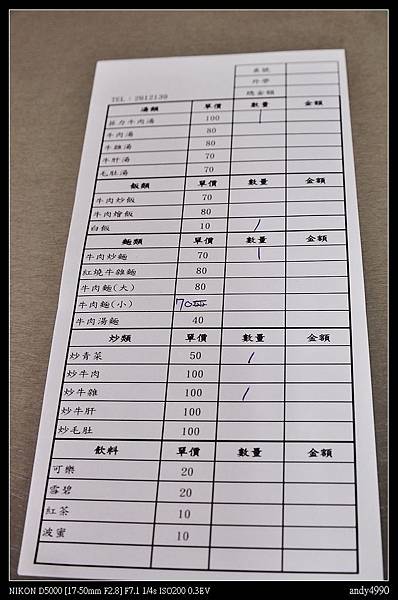 桌號
外帶
總金額
TEL：2812139
湯類 單價 數量 金額
菲力牛肉湯 100 /
牛肉湯 80
牛雜湯 80
牛肝湯 70
毛肚湯 70
飯類 單價 數量 金額
牛肉炒飯 70
牛肉燴飯 80
白飯 10 /
麵類 單價 數量 金額
牛肉炒麵 70 /
紅燒牛雜麵 80
牛肉麵(大) 80
牛肉麵(小) 70
牛肉湯麵 40
炒類 單價 數量 金額
炒青菜 50 /
炒牛肉 100
炒牛雜 100 /
炒牛肝 100
炒毛肚 100
飲料 單價 數量 金額
可樂 20
雪碧 20
紅茶 10
波蜜 10
NIKON D5000 [17-50mm F2.8] F7.1 1/4s ISO200 0.3EV
andy4990